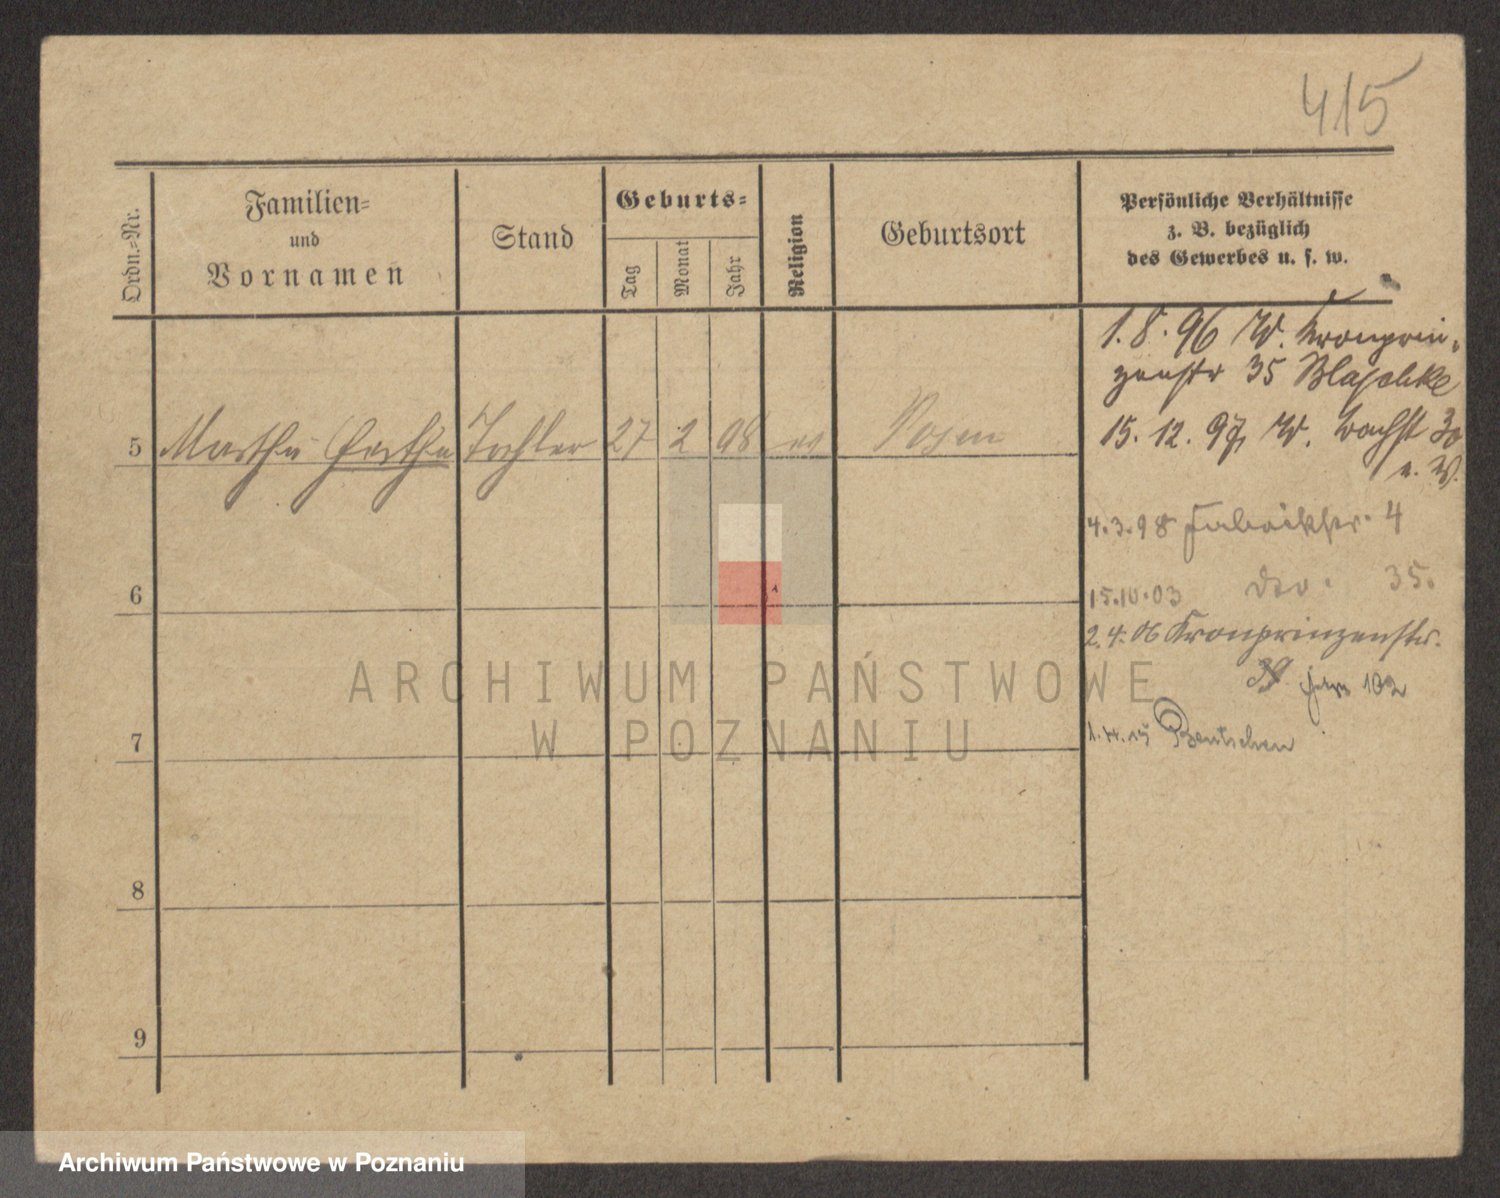 415
Ordn.=Nr.
Familien=
und
Vornamen
Stand
Geburts=
Tag
Monat
Jahr
Religion
Geburtsort
Persönliche Verhältnisse
z. B. bezüglich
des Gewerbes u. s. w.
1.8.96 W. Kronprin-
zenstr 35 Blaschke
15.12.97 W.
5 Martha Hertha Tochter 27 2 98 ev Posen
4.3.98 Fabrikstr. 4
6
15.10.03 do. 35.
2.4.06 Kronprinzenstr.
102
7
Bentschen
8
9
ARCHIWUM PAŃSTWOWE
W POZNANIU
Archiwum Państwowe w Poznaniu